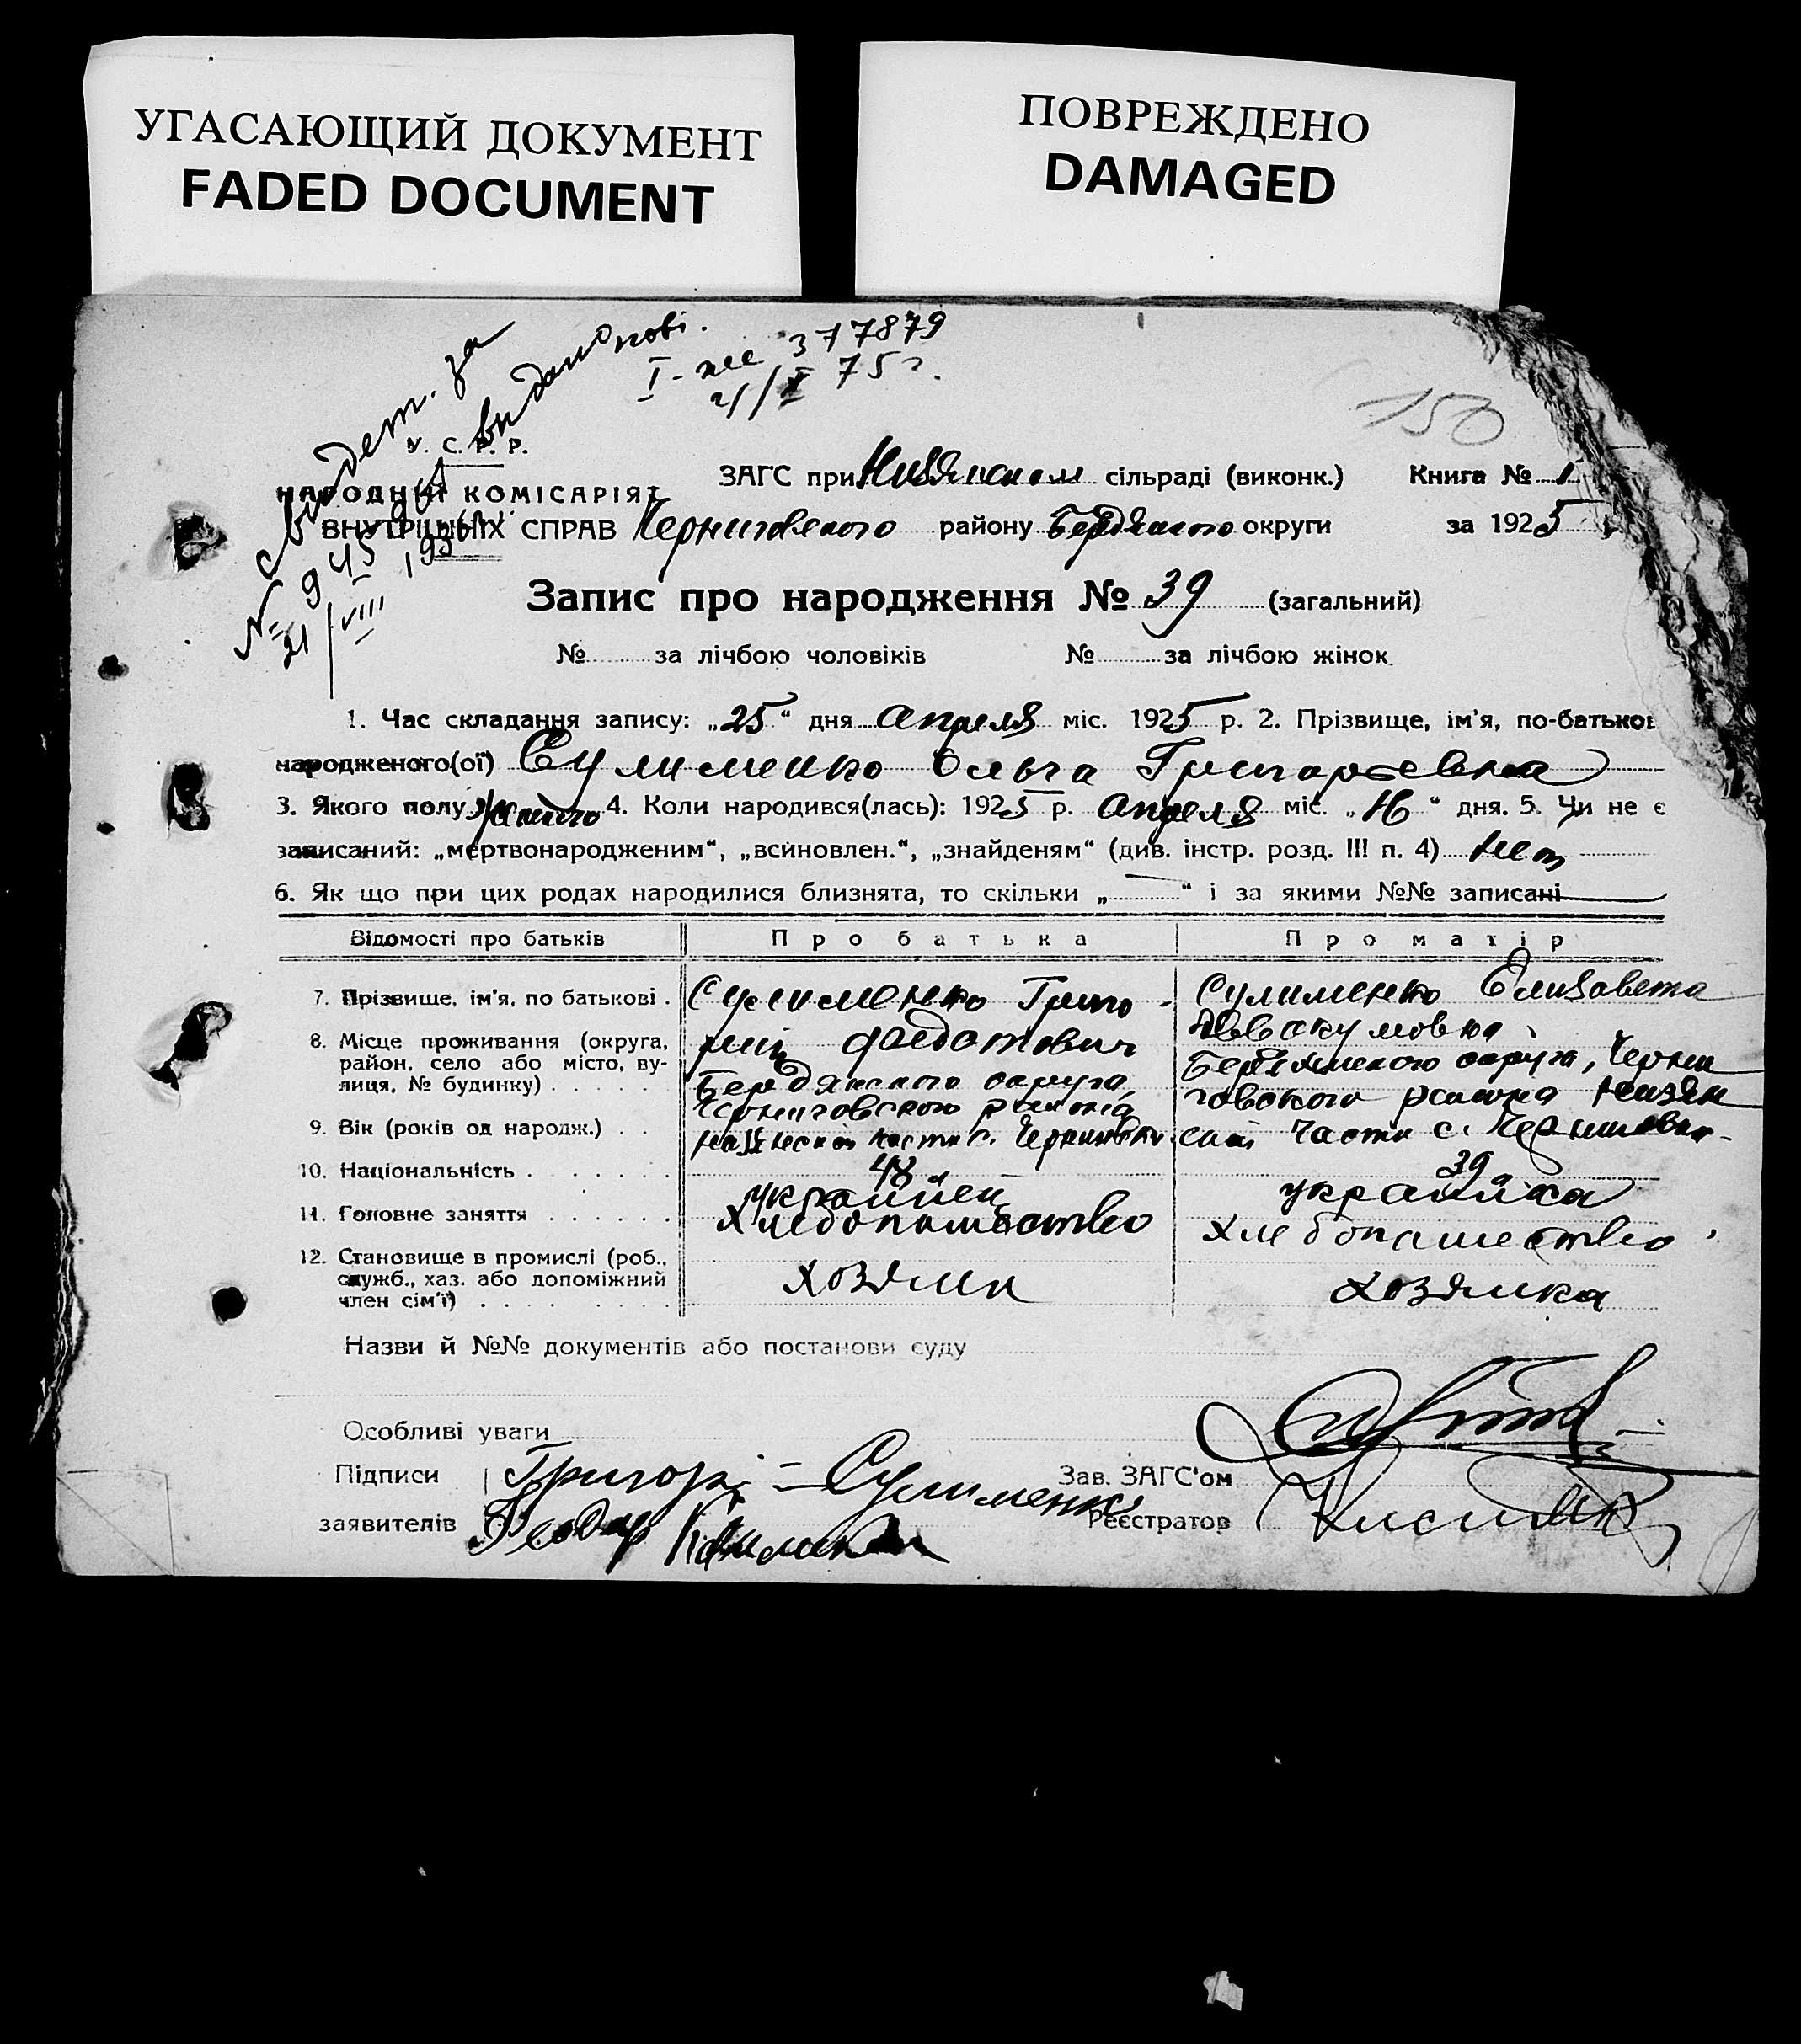 УГАСАЮЩИЙ ДОКУМЕНТ
FADED DOCUMENT
ПОВРЕЖДЕНО
DAMAGED
150
У. С. Р. Р.
НАРОДНИЙ КОМІСАРІЯТ
ВНУТРІШНІХ СПРАВ
ЗАГС при сільраді (виконк.) Книга № 1
Черниговского району Бердянского округи за 1925
Запис про народження № 39 (загальний)
№ за лічбою чоловіків № за лічбою жінок
1. Час складання запису: „25“ дня Апреля міс. 1925 р. 2. Прізвище, ім'я, по-батькові
народженого(ої) Сулименко Ольга Григорьевна
3. Якого полу 4. Коли народився(лась): 1925 р. Апреля міс. дня. 5. Чи не є
записаний: „мертвонародженим“, „всиновлен.“, „знайденям“ (див. інстр. розд. III п. 4) Нет
6. Як що при цих родах народилися близнята, то скільки „ “ і за якими №№ записані
Відомості про батьків Про батька Про матір
7. Прізвище, ім'я, по батькові . Сулименко Григо- Сулименко Елизавета
рий Федотович
8. Місце проживання (округа, район, село або місто, вулиця, № будинку) . . . . . Бердянского округа Бердянского округа, Черни
Черниговского района говского района
части с. Черниговки части с. Черниговки
9. Вік (років од народж.) . . 48 39
10. Національність . . . . . . украинец украинка
11. Головне заняття . . . . . . Хлебопашество Хлебопашество
12. Становище в промислі (роб., служб., хаз. або допоміжний член сім'ї) . . . . . . . Хозяин Хозяика
Назви й №№ документів або постанови суду
Особливі уваги
Підписи Григорі Сулименко Зав. ЗАГС'ом
заявителів Реєстратор